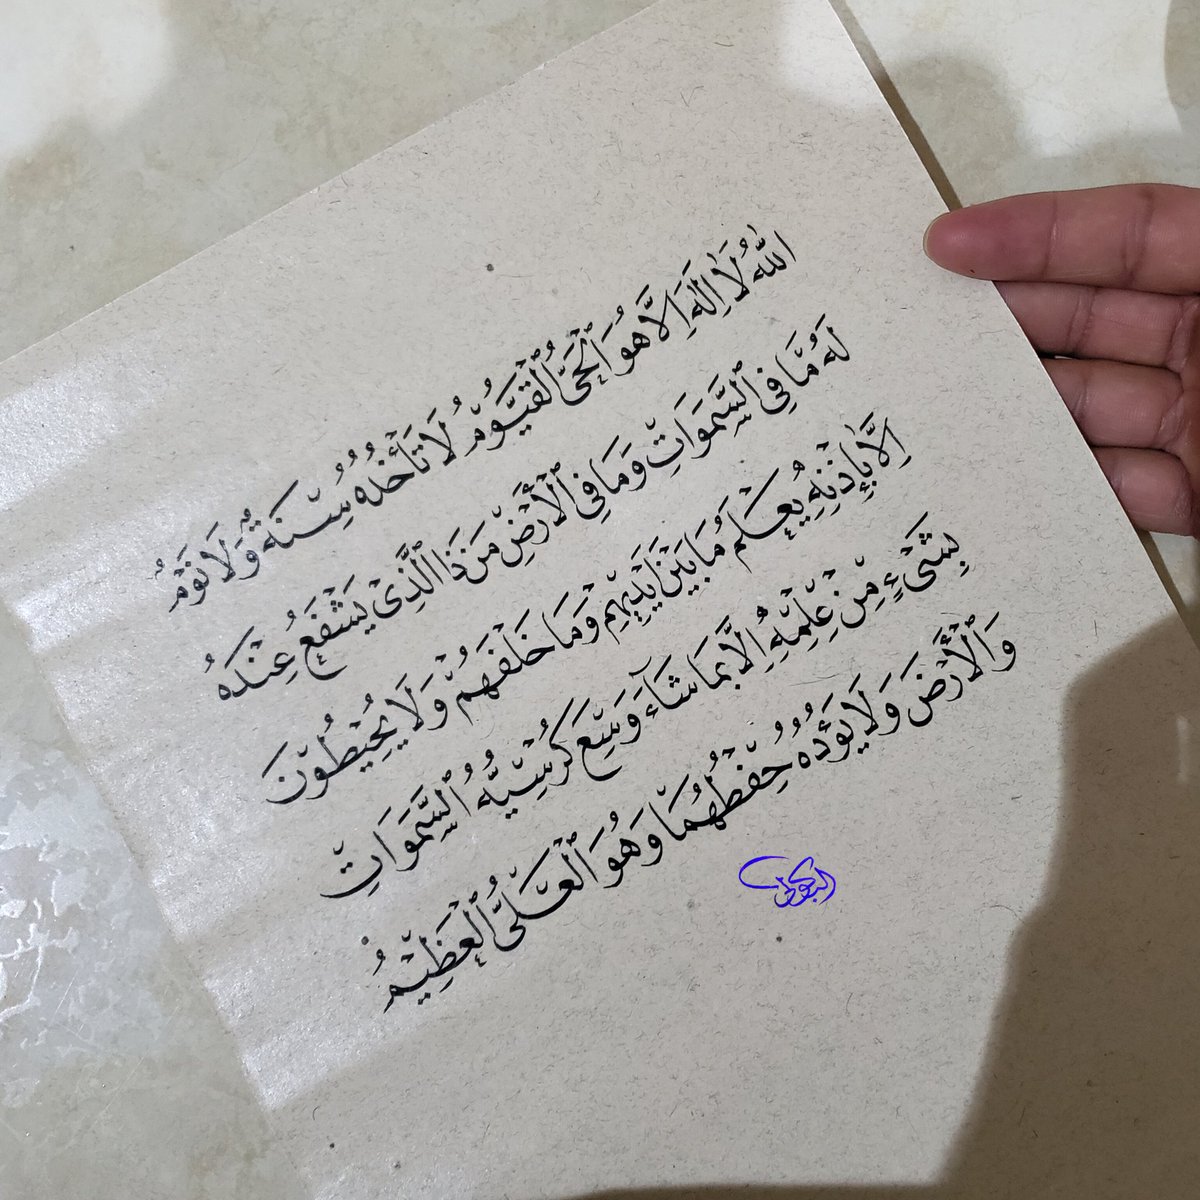 اللّٰهُ لَا اِلٰهَ اِلَّا هُوَ الْحَيُّ الْقَيُّوْمُ لَا تَأْخُذُهُ سِنَةٌ وَّلَا نَوْمٌ
لَهُ مَا فِي السَّمٰوَاتِ وَمَا فِي الْأَرْضِ مَنْ ذَا الَّذِيْ يَشْفَعُ عِنْدَهُ
اِلَّا بِإِذْنِهِ يَعْلَمُ مَا بَيْنَ أَيْدِيْهِمْ وَمَا خَلْفَهُمْ وَلَا يُحِيْطُوْنَ
بِشَيْءٍ مِنْ عِلْمِهِ اِلَّا بِمَا شَاءَ وَسِعَ كُرْسِيُّهُ السَّمٰوَاتِ
وَالْأَرْضَ وَلَا يَؤُدُهُ حِفْظُهُمَا وَهُوَ الْعَلِيُّ الْعَظِيْمُ